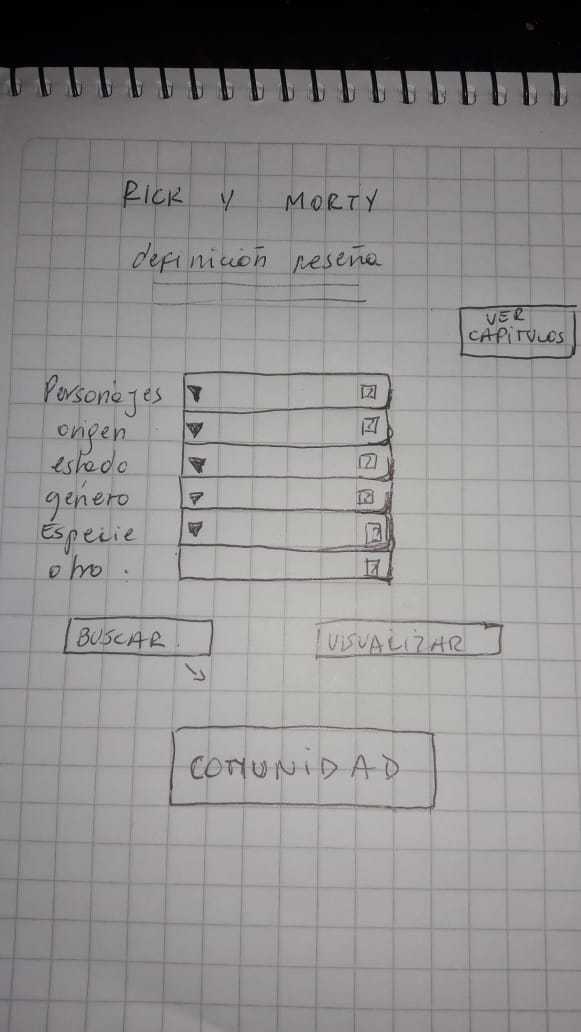 RICK Y MORTY
definición reseña
VER
CAPÍTULOS
Personajes
origen
estado
género
Especie
otro
BUSCAR
VISUALIZAR
COMUNIDAD